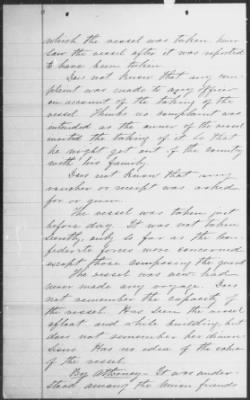 which the vessel was taken
saw the vessel after it was reported
to have been taken
Does not know that any com-
plaint was made to any officer
on account of the taking of the
vessel. Thinks no complaint was
intended as the owner of the vessel
wanted the taking of it so that
he might get out of the country
with his family
Does not know that any
voucher or receipt was asked
for or given
The vessel was taken just
before day. It was not taken
secretly, only so far as the Con-
federate forces were concerned
except those composing the guard
The vessel was new. had
never made any voyage. Does
not remember the capacity of
the vessel. Has seen the vessel
afloat and while building but
does not remember her dimen-
sions. Has no idea of the value
of the vessel.
By Attorney - It was under-
stood among the Union friends